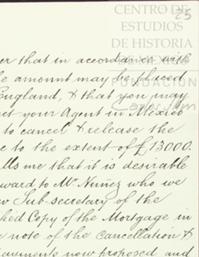 CENTRO DE
ESTUDIOS
DE HISTORIA
25
er that in accordance with
le amount may be placed
England, & that you may
ct your Agent in Mexico
to cancel & release the
e to the extent of £13000.
lls me that it is desirable
ward to Mr Nunez who we
w Sub secretary of the
hed Copy of the Mortgage in
e note of the cancellation &
ayments now proposed and